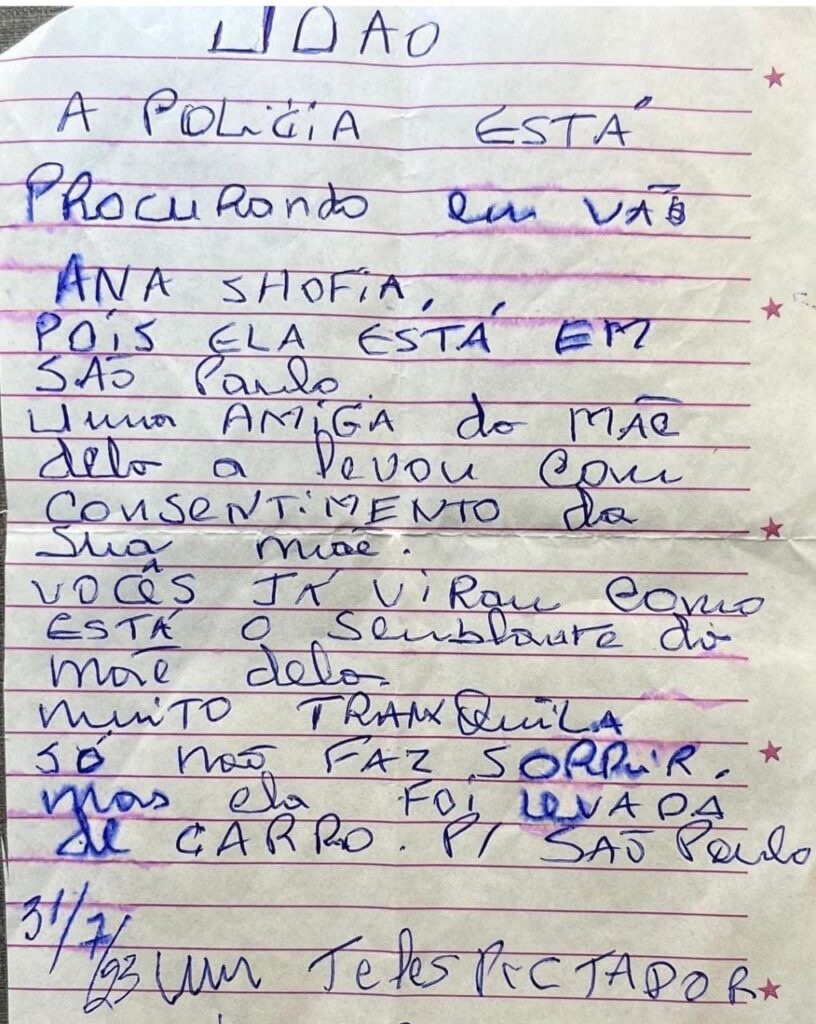 LIDAO
A POLiCiA ESTÁ
PROCURando em VÃO
ANA SHOFiA,
POiS ELA ESTÁ EM
SÃO Paulo.
Uma AMiGA da MÃE
dela a levou com
CONSENTiMENTO da
Sua mãe.
VOCÊS JÁ ViRam como
ESTÁ o Semblante da
mãe dela
muiTO TRANXQuiLA
SÓ não FAZ SORRiR.
mas ela FOi LEVADA
de CARRO. P/ SÃO Paulo
31/7/23 um TelesPiCTADOR